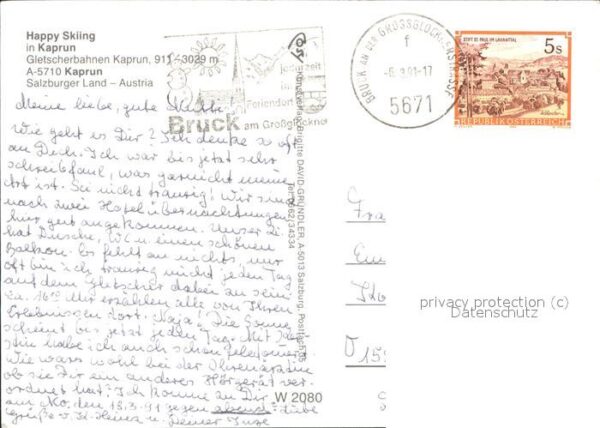 Happy Skiing
in Kaprun
Gletscherbahnen Kaprun, 911–3029 m
A-5710 Kaprun
Salzburger Land – Austria
jederzeit
Feriendorf
Bruck am Großglockner
BRUCK AN DER GROSSGLOCKNERSTRASSE
f
-6.3.91-17
5671
STIFT ST. PAUL IM LAVANTTAL
5s
REPUBLIK ÖSTERREICH
Meine liebe, gute Mutti!
Wie geht es Dir? Ich denke so oft
an Dich. Ich war bis jetzt sehr
schreibfaul, was garnicht meine
Art ist. Sei nicht traurig! Wir sind
nach zwei Hotelübernachtungen
hier gut angekommen. Unser Zi.
hat Dusche, WC u. einen schönen
Balkon. Es fehlt an nichts, nur
oft bin ich traurig nicht jeden Tag
auf dem Gletscher dabei zu sein.
Ca. 16°° Uhr erzählen alle von Ihren
Erlebnissen dort. Naja! Die Sonne
scheint bis jetzt jeden Tag. Mit
habe ich auch schon telefoniert.
Wie wars wohl bei der Ohrenärztin
ob sie Dir ein anderes Hörgerät ver-
ordnet hat? Ich komme zu Dir
am Mo. den 18.3.91 gegen abend. Liebe
Grüße v. K.-Heinz u. Deiner Inge
Brigitte DAVID-GRÜNDLER, A-5013 Salzburg, Postfach
W 2080
privacy protection (c)
Datenschutz